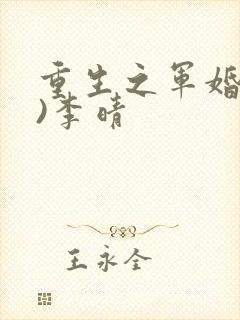 重生之军婚
)李晴
王永全